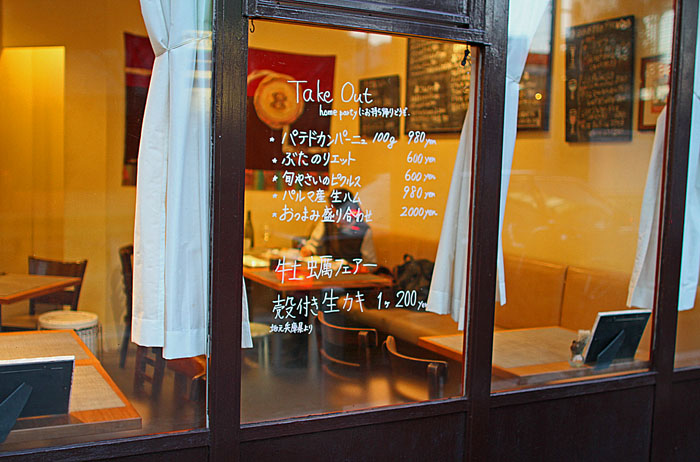 Take Out
home partyにお持ち帰りどうぞ。
* パテドカンパーニュ 100g 980yen
* ぶたのリエット 600yen
* 旬やさいのピクルス 600yen
* パルマ産生ハム 980yen
* おつまみ盛り合わせ 2000yen
牡蠣フェアー
殻付き生カキ 1ヶ200yen
地元兵庫県より